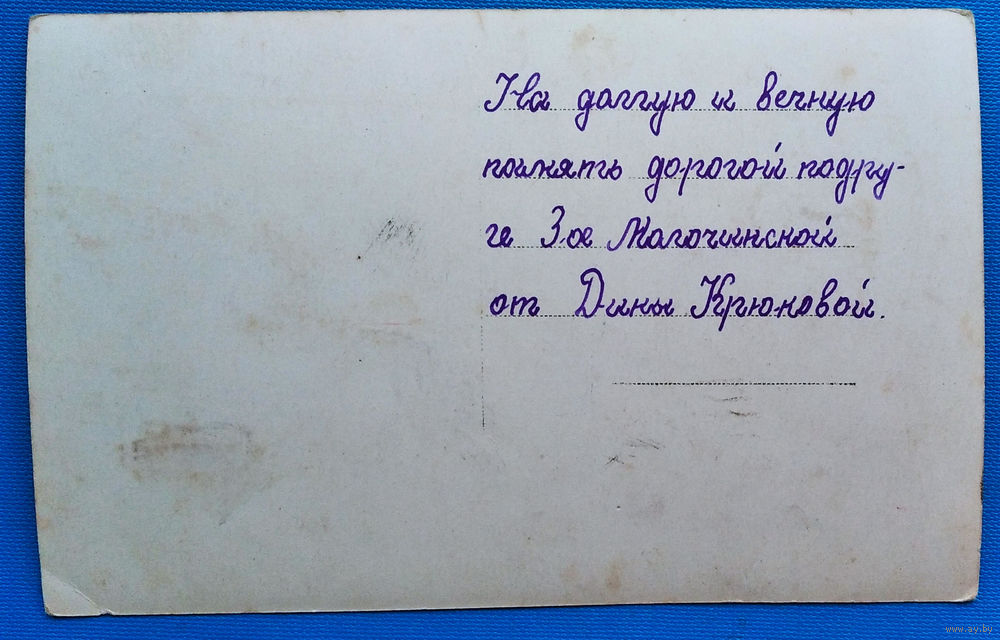 На долгую и вечную
память дорогой подру-
ге Зое Малочинской
от Дины Крюковой.
www.ay.by